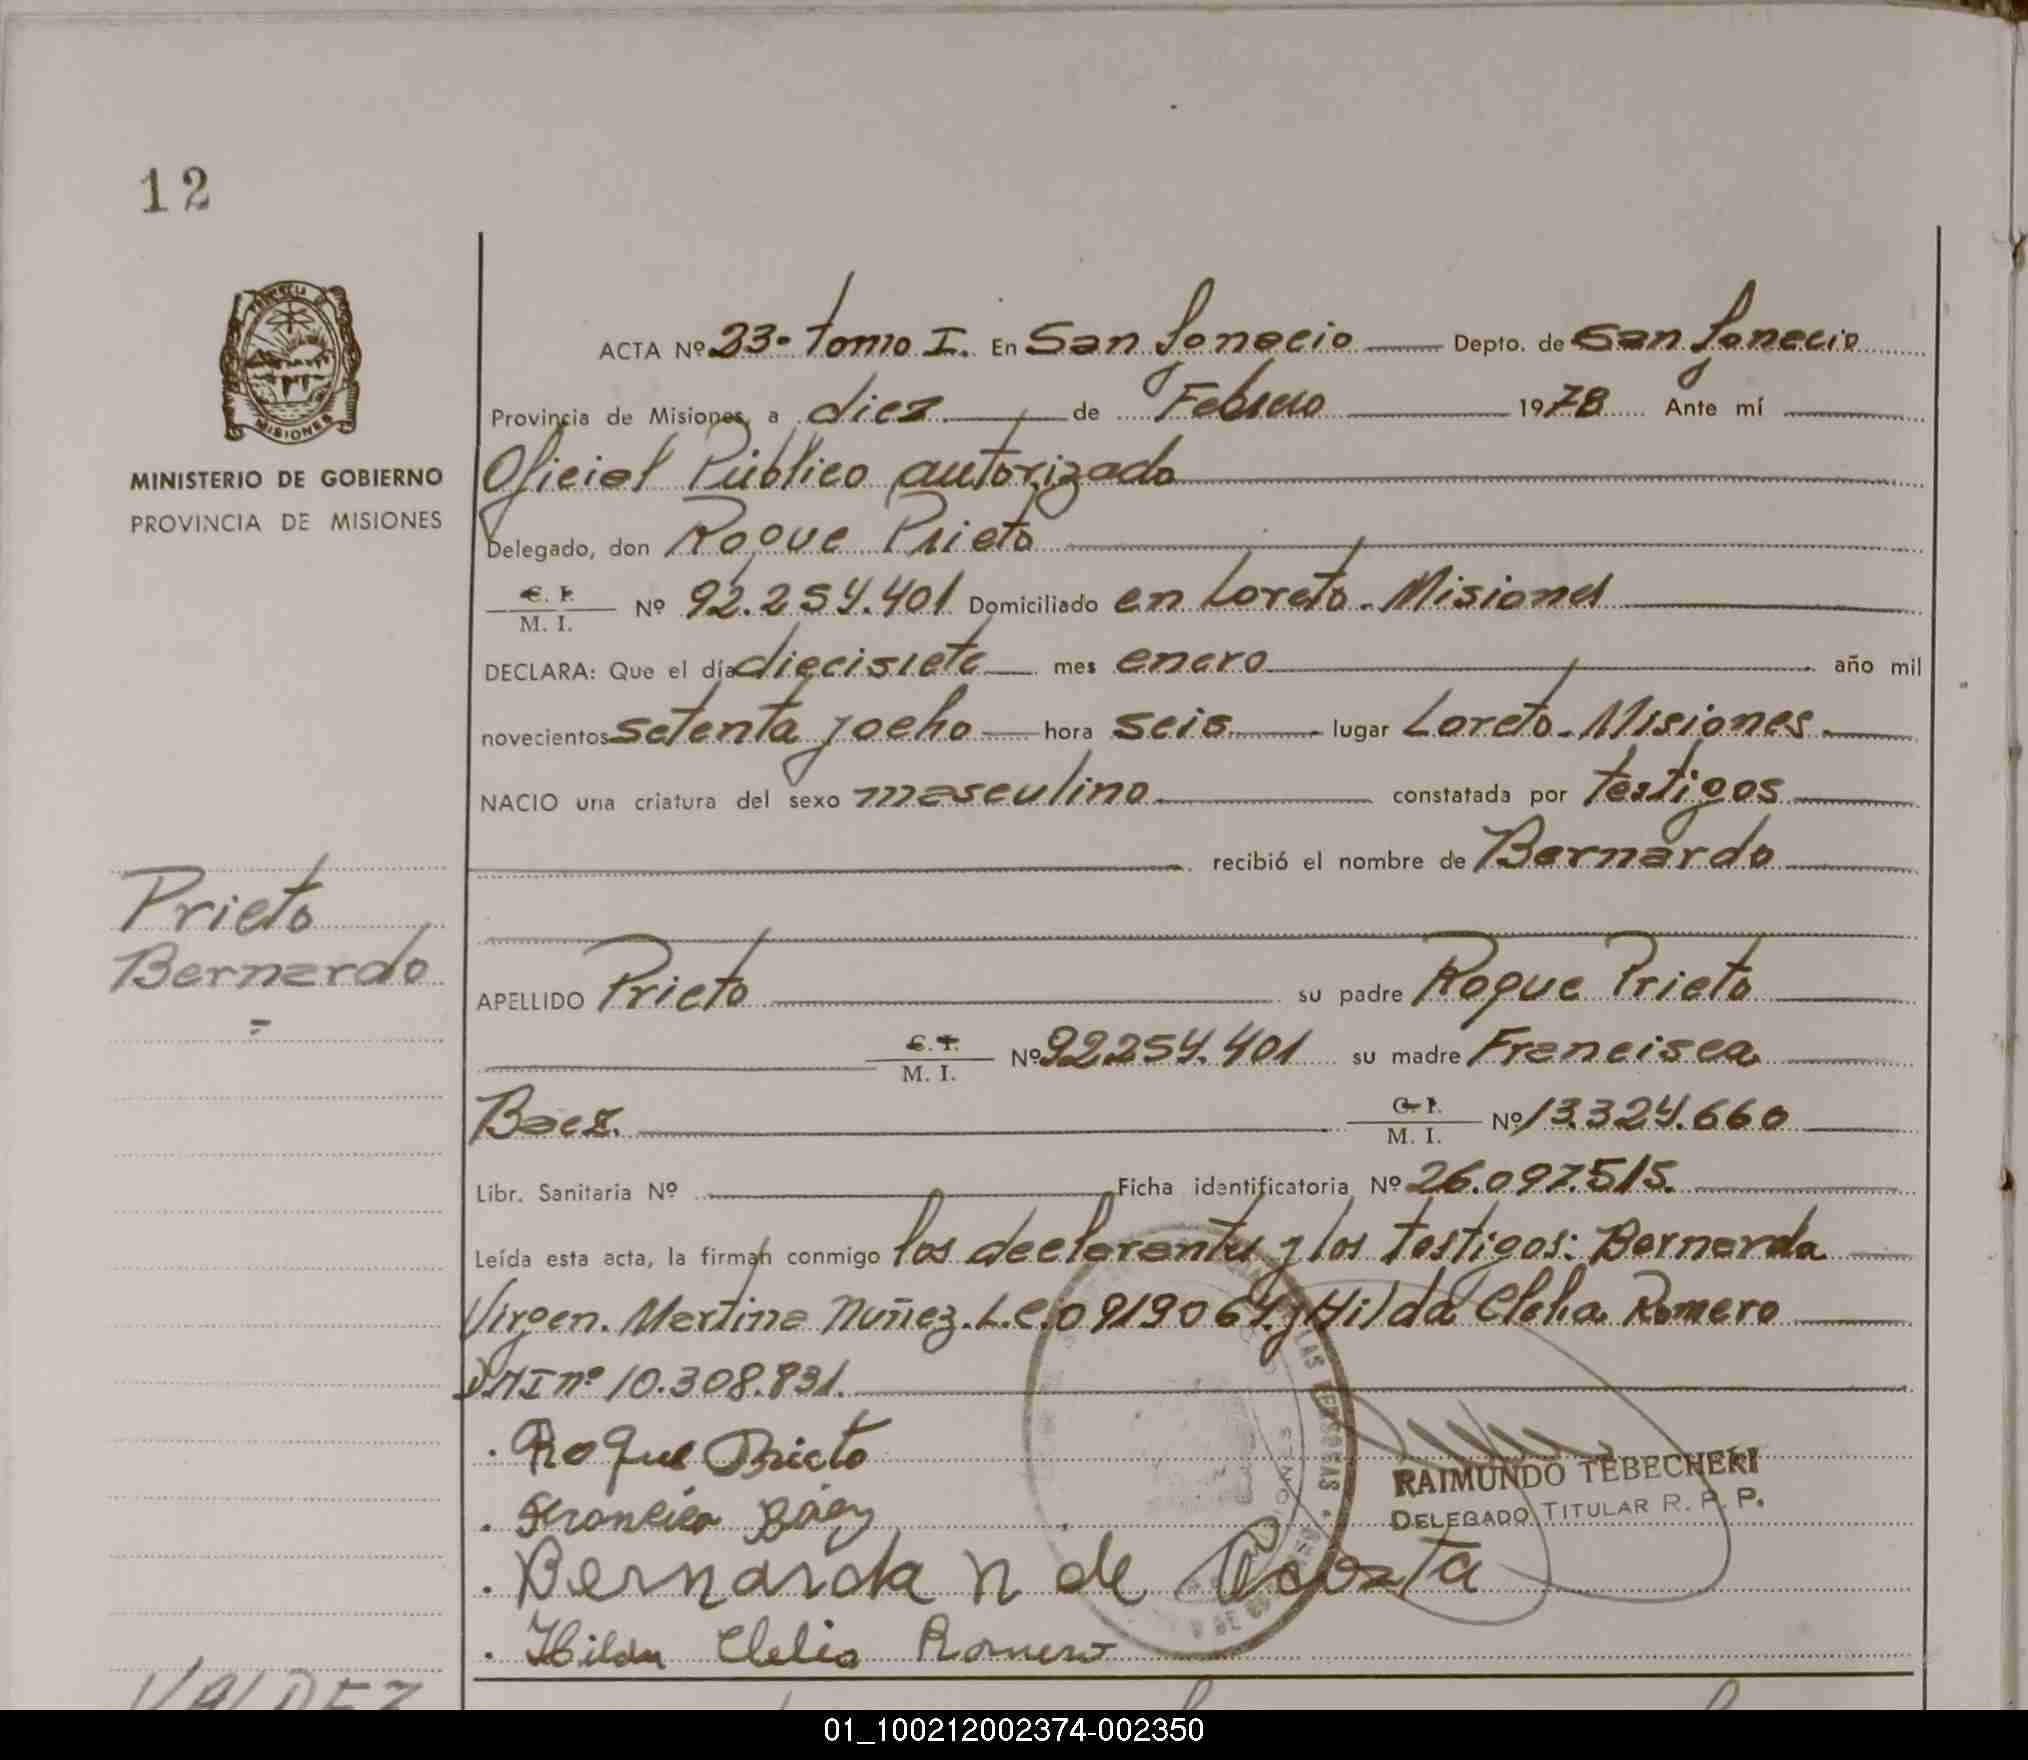 12
PROVINCIA DE
MISIONES
MINISTERIO DE GOBIERNO
PROVINCIA DE MISIONES
ACTA Nº 23 - tomo I. En San Ignacio Depto. de San Ignacio
Provincia de Misiones, a diez de Febrero 1978 Ante mí
Oficial Público autorizado
Delegado, don Roque Prieto
C. I.
M. I. Nº 92.254.401 Domiciliado en Loreto - Misiones
DECLARA: Que el día diecisiete mes enero año mil
novecientos setenta y ocho hora seis lugar Loreto - Misiones
NACIO una criatura del sexo masculino constatada por testigos
recibió el nombre de Bernardo
Prieto
Bernardo
=
APELLIDO Prieto su padre Roque Prieto
C. I.
M. I. Nº 92.254.401 su madre Francisca
Baez. C. I.
M. I. Nº 13.324.660
Libr. Sanitaria Nº Ficha identificatoria Nº 26.097.515.
Leída esta acta, la firman conmigo los declarantes y los testigos: Bernarda
Virgen. Martina Nuñez. L.C. 0919064. y Hilda Clelia Romero
DNI nº 10.308.831.
. Roque Prieto
. Francisca Báez
. Bernarda N de Acosta
. Hilda Clelia Romero
RAIMUNDO TEBECHERI
DELEGADO TITULAR R. P. P.
VALDEZ
01_100212002374-002350